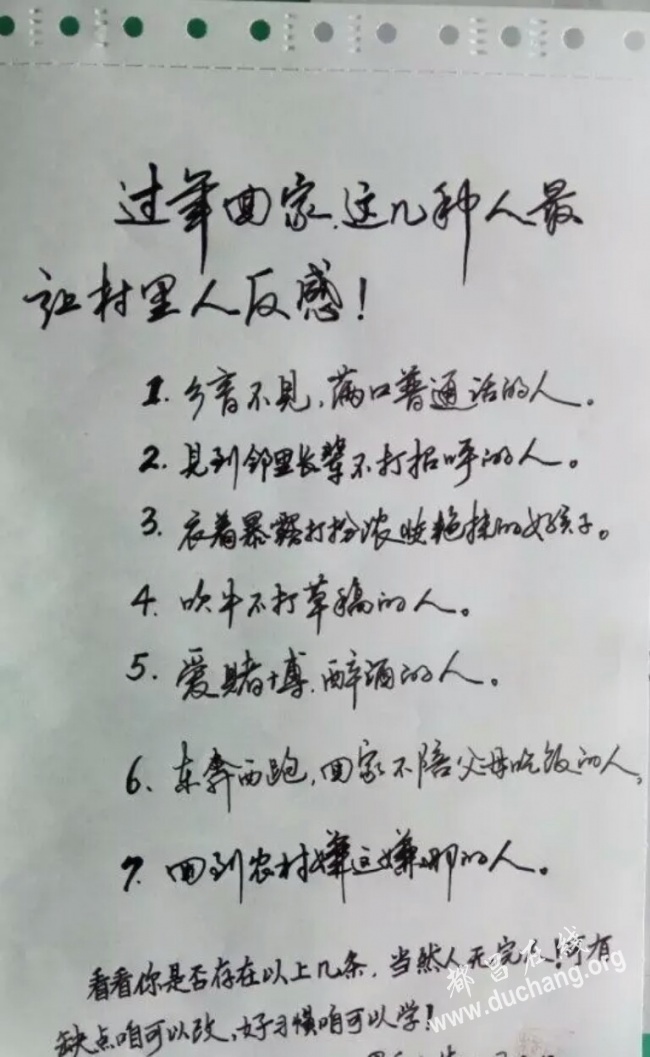 过年回家,这几种人最
让村里人反感!
1. 乡音不见,满口普通话的人。
2. 见到邻里长辈不打招呼的人。
3. 衣着暴露打扮浓妆艳抹的女孩子。
4. 吹牛不打草稿的人。
5. 爱赌博、醉酒的人。
6. 东奔西跑,回家不陪父母吃饭的人,
7. 回到农村嫌这嫌那的人。
看看你是否存在以上几条,当然人无完人!可有
缺点咱可以改,好习惯咱可以学!
都昌在线
www.duchang.org